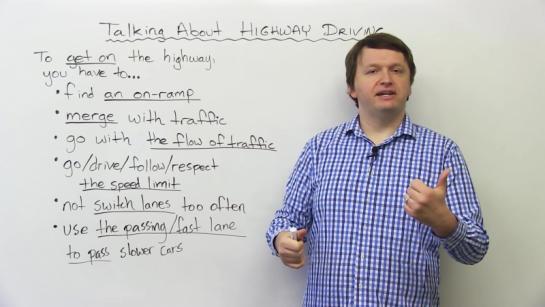 Talking About HIGHWAY DRIVING
To get on the highway,
you have to...
• find an on-ramp
• merge with traffic
• go with the flow of traffic
• go/drive/follow/respect
the speed limit
• not switch lanes too often
• use the passing/fast lane
to pass slower cars